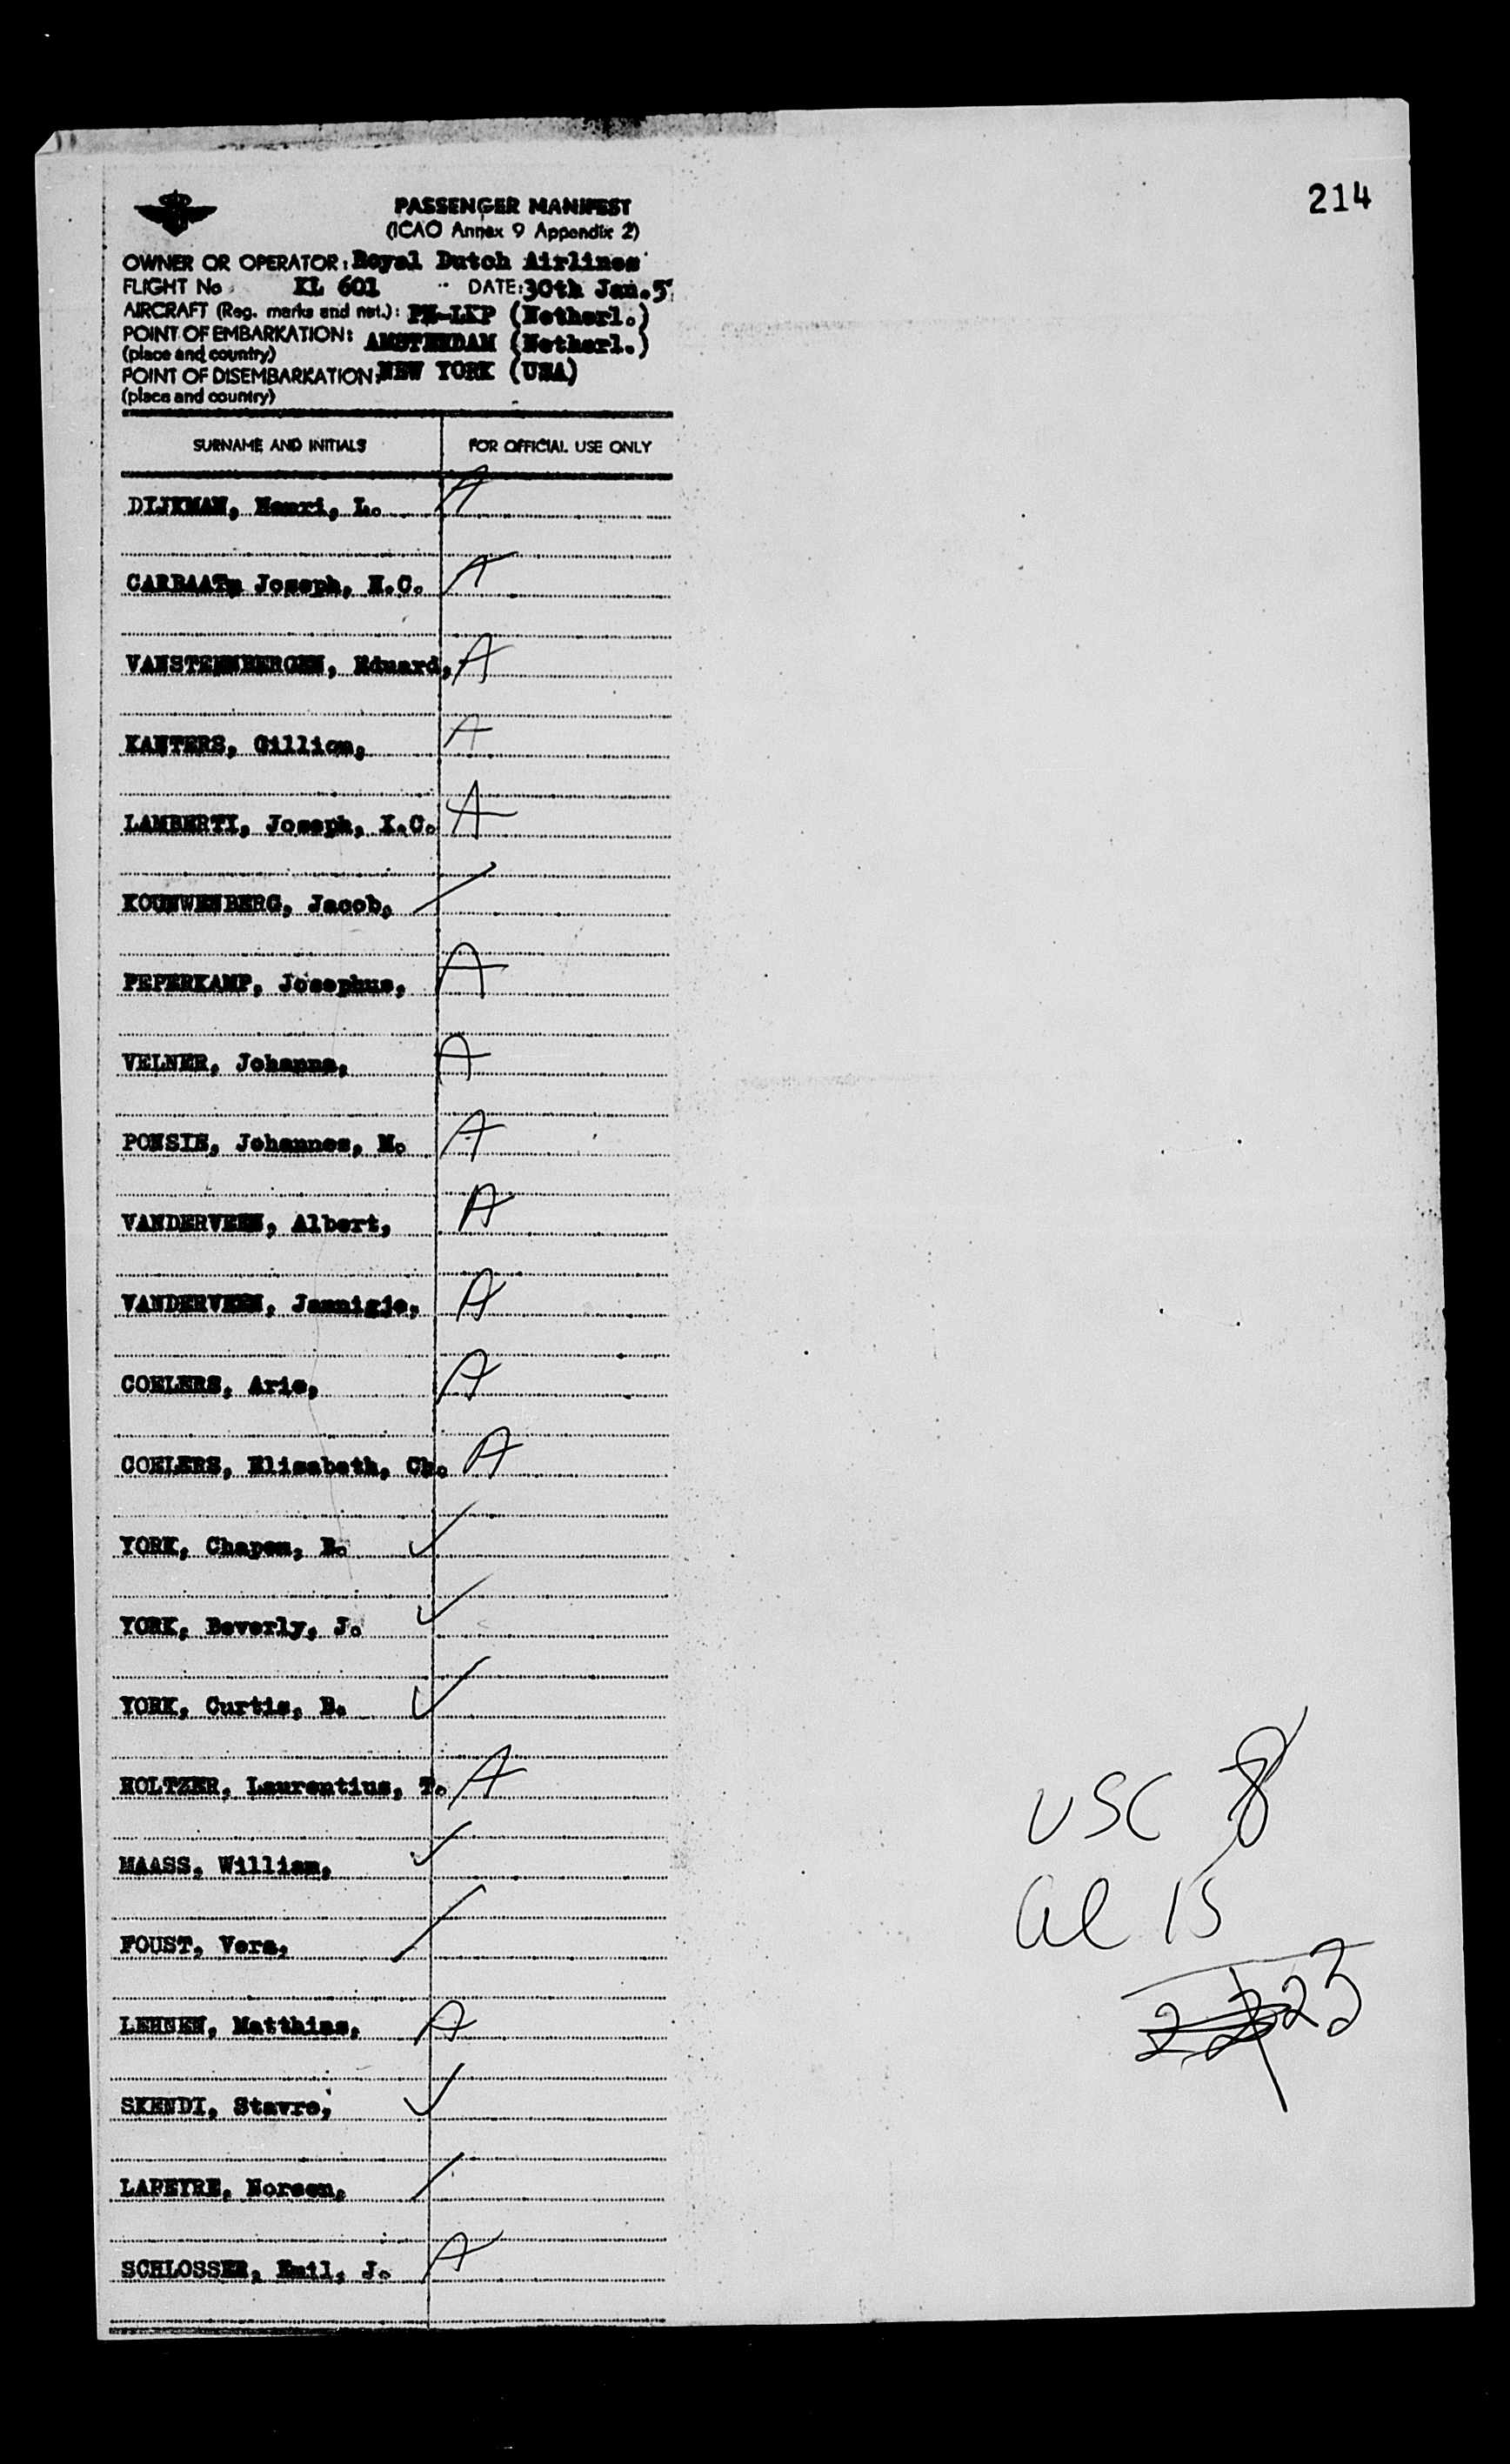 214
PASSENGER MANIFEST
(ICAO Annex 9 Appendix 2)
OWNER OR OPERATOR: Royal Dutch Airlines
FLIGHT No KL 601 DATE: 30th Jan. 5
AIRCRAFT (Reg. marks and nat.): PH-LKP (Netherl.)
POINT OF EMBARKATION: AMSTERDAM (Netherl.)
(place and country)
POINT OF DISEMBARKATION: NEW YORK (USA)
(place and country)
SURNAME AND INITIALS FOR OFFICIAL USE ONLY
DIJKMAN, Henri, L. A
CARBAAT, Joseph, H.C. A
VANSTEENBERGEN, Eduard, A
KANTERS, Gillion, A
LAMBERTI, Joseph, I.C. A
KOUNWENBERG, Jacob,
PEPERKAMP, Josephus, A
VELNER, Johanna, A
PONSIE, Johannes, M. A
VANDERVEEN, Albert, A
VANDERVEEN, Jannigje, A
COELERS, Arie, A
COELERS, Elisabeth, Ch. A
YORK, Chapen, B. ✓
YORK, Beverly, J. ✓
YORK, Curtis, B. ✓
HOLTZER, Laurentius, T. A
MAASS, William, ✓
FOUST, Vera,
LEHSEN, Matthias, A
SKENDI, Stavro, ✓
LAPEYRE, Noreen,
SCHLOSSER, Emil, J. A
USC 8
al 15
23